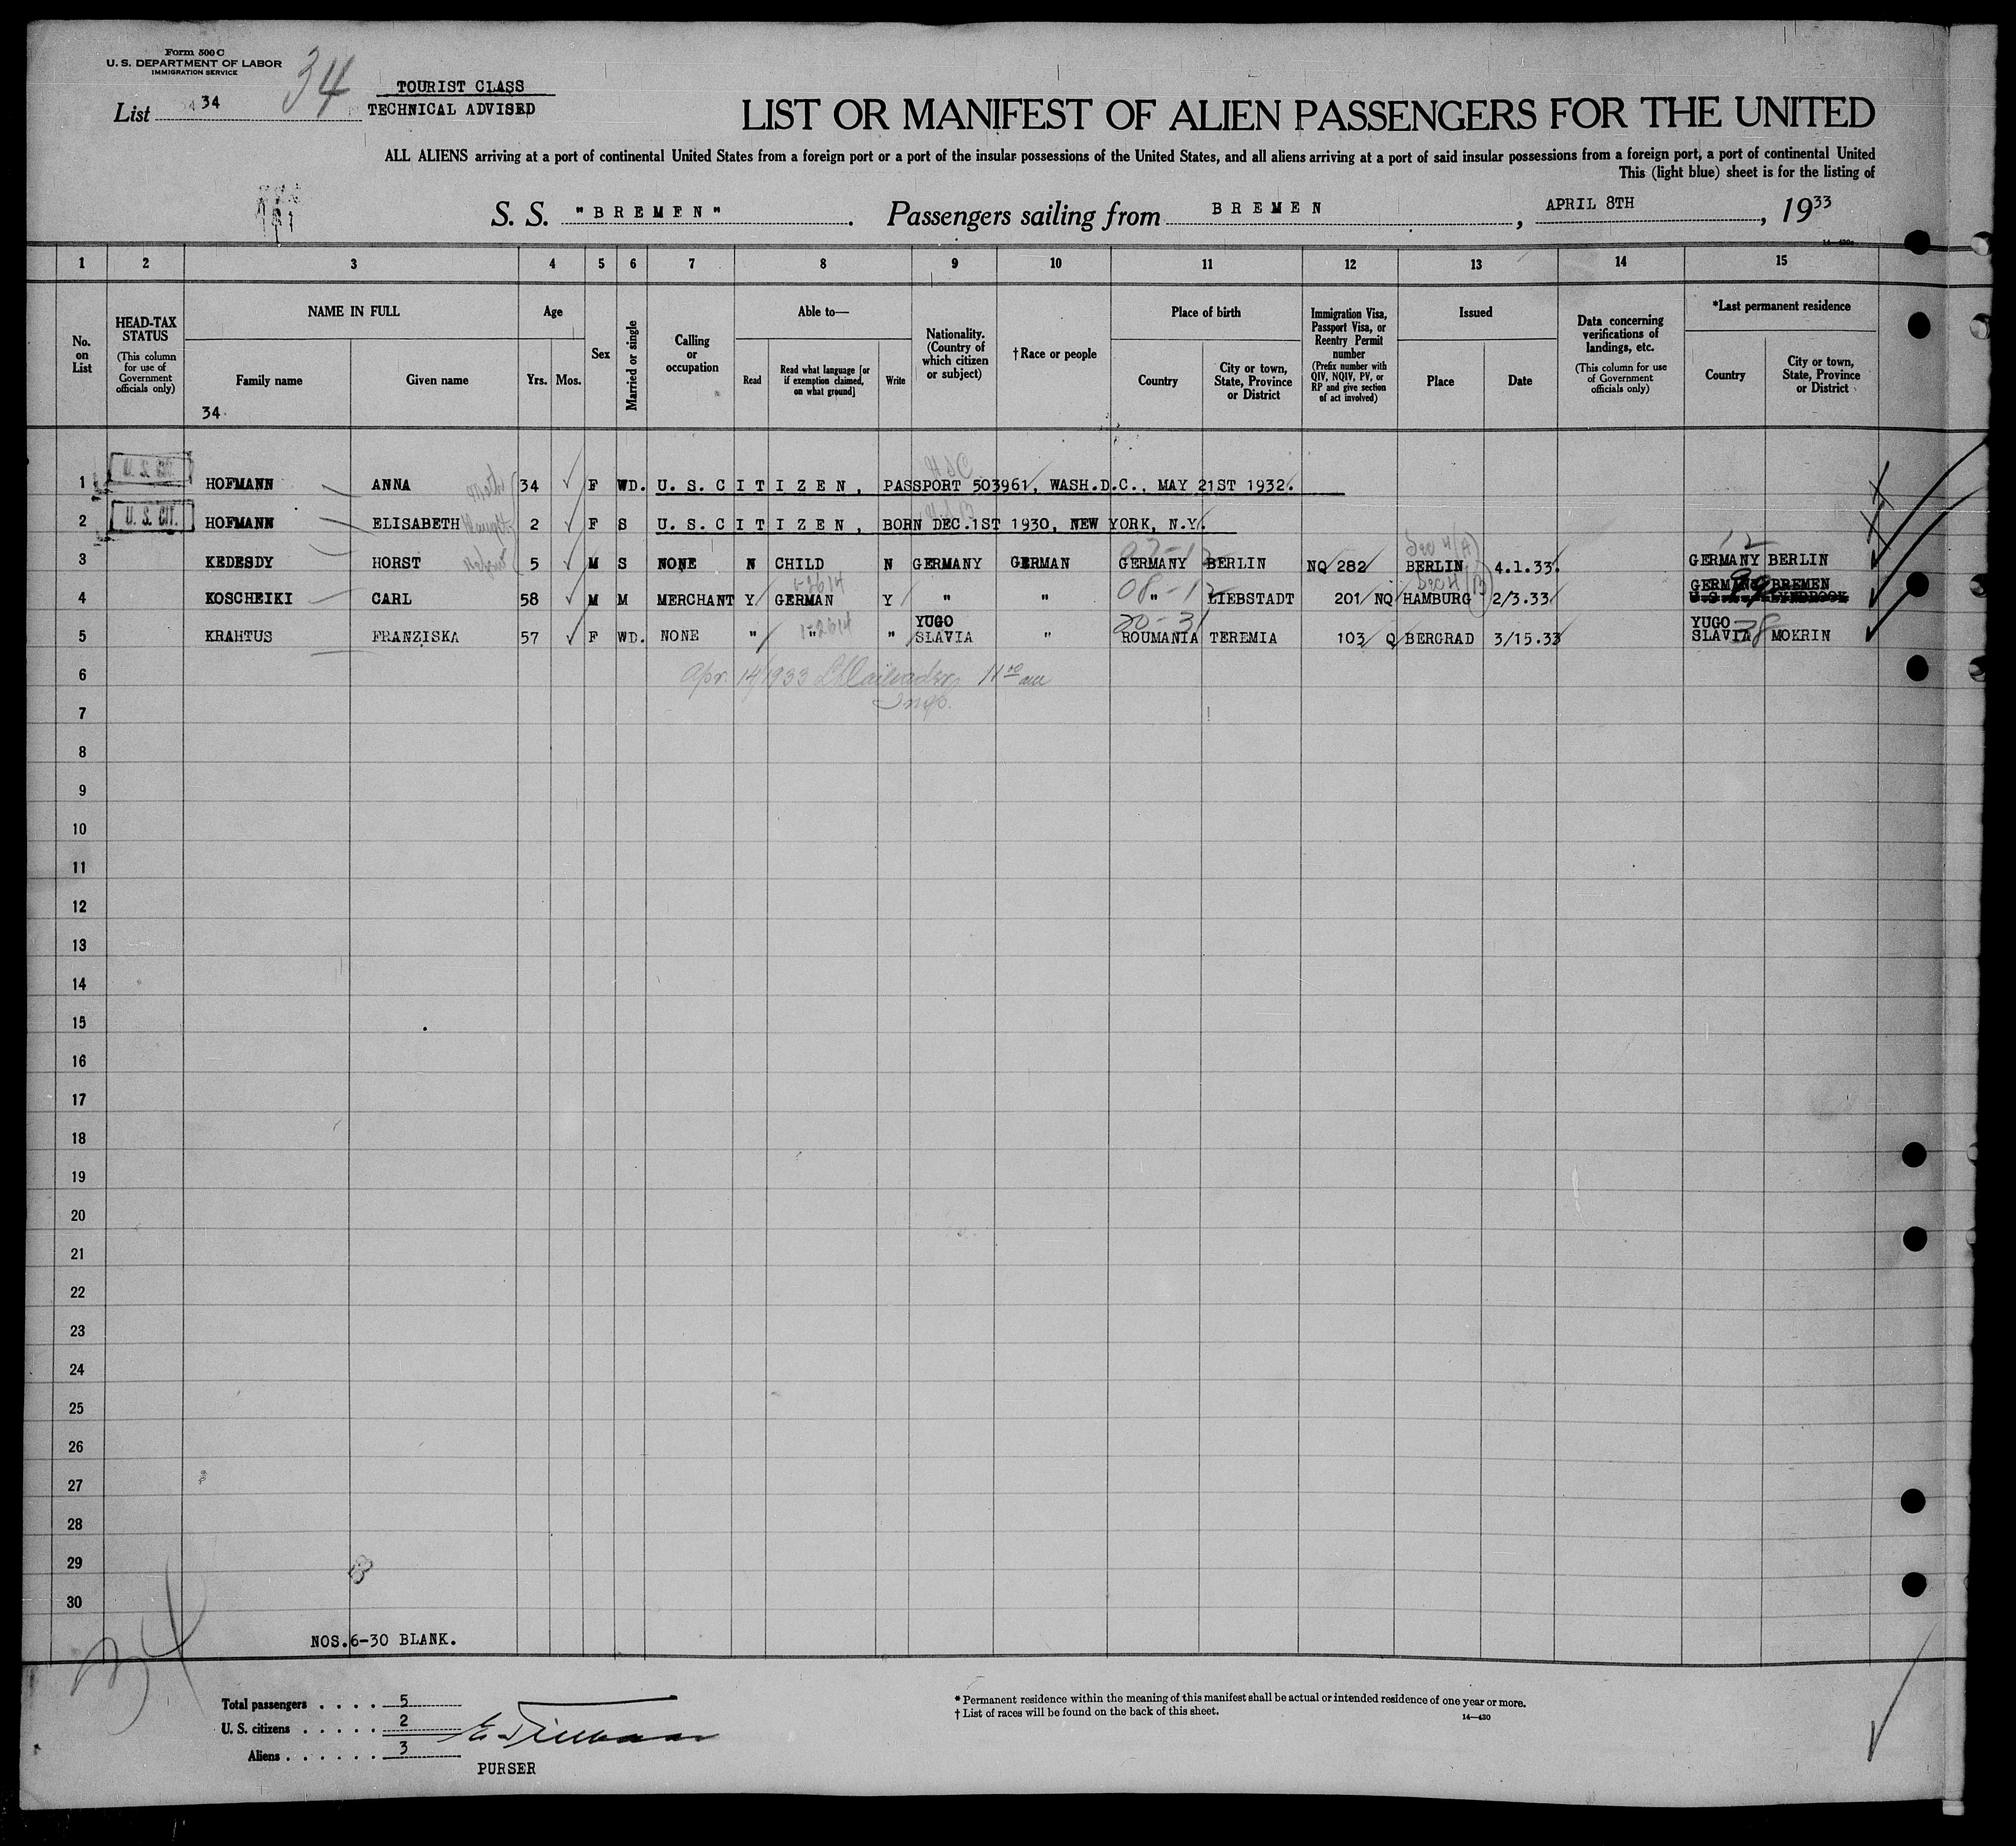 Form 500 C
U. S. DEPARTMENT OF LABOR
IMMIGRATION SERVICE
List 34
34
TOURIST CLASS
TECHNICAL ADVISED
LIST OR MANIFEST OF ALIEN PASSENGERS FOR THE UNITED
ALL ALIENS arriving at a port of continental United States from a foreign port or a port of the insular possessions of the United States, and all aliens arriving at a port of said insular possessions from a foreign port, a port of continental United
This (light blue) sheet is for the listing of
S. S. "BREMEN". Passengers sailing from BREMEN, APRIL 8TH, 1933
14—430a
1 2 3 4 5 6 7 8 9 10 11 12 13 14 15
No. on List
HEAD-TAX STATUS
(This column for use of Government officials only)
NAME IN FULL
Family name
Given name
34
Age
Yrs. Mos.
Sex
Married or single
Calling or occupation
Able to—
Read
Read what language [or if exemption claimed, on what ground]
Write
Nationality. (Country of which citizen or subject)
†Race or people
Place of birth
Country
City or town, State, Province or District
Immigration Visa, Passport Visa, or Reentry Permit number
(Prefix number with QIV, NQIV, PV, or RP and give section of act involved)
Issued
Place
Date
Data concerning verifications of landings, etc.
(This column for use of Government officials only)
*Last permanent residence
Country
City or town, State, Province or District
U. S. CIT.
1 HOFMANN ANNA 34 F WD. U. S. C I T I Z E N , PASSPORT 503961, WASH.D.C., MAY 21ST 1932.
U. S. CIT.
2 HOFMANN ELISABETH 2 F S U. S. C I T I Z E N , BORN DEC.1ST 1930, NEW YORK, N.Y.
3 KEDESDY HORST 5 M S NONE N CHILD N GERMANY GERMAN GERMANY BERLIN NQ 282 BERLIN 4.1.33. GERMANY BERLIN
4 KOSCHEIKI CARL 58 M M MERCHANT Y GERMAN Y " " " LIEBSTADT 201 NQ HAMBURG 2/3.33 GERMANY BREMEN
5 KRAHTUS FRANZISKA 57 F WD. NONE " " " YUGO SLAVIA " ROUMANIA TEREMIA 103 Q BERGRAD 3/15.33 YUGO SLAVIA MOKRIN
6
Apr. 14/1933
Insp.
7
8
9
10
11
12
13
14
15
16
17
18
19
20
21
22
23
24
25
26
27
28
29
30
34
NOS.6-30 BLANK.
Total passengers . . . . 5
U. S. citizens . . . . . 2
Aliens . . . . . . 3
PURSER
* Permanent residence within the meaning of this manifest shall be actual or intended residence of one year or more.
† List of races will be found on the back of this sheet.
14—430